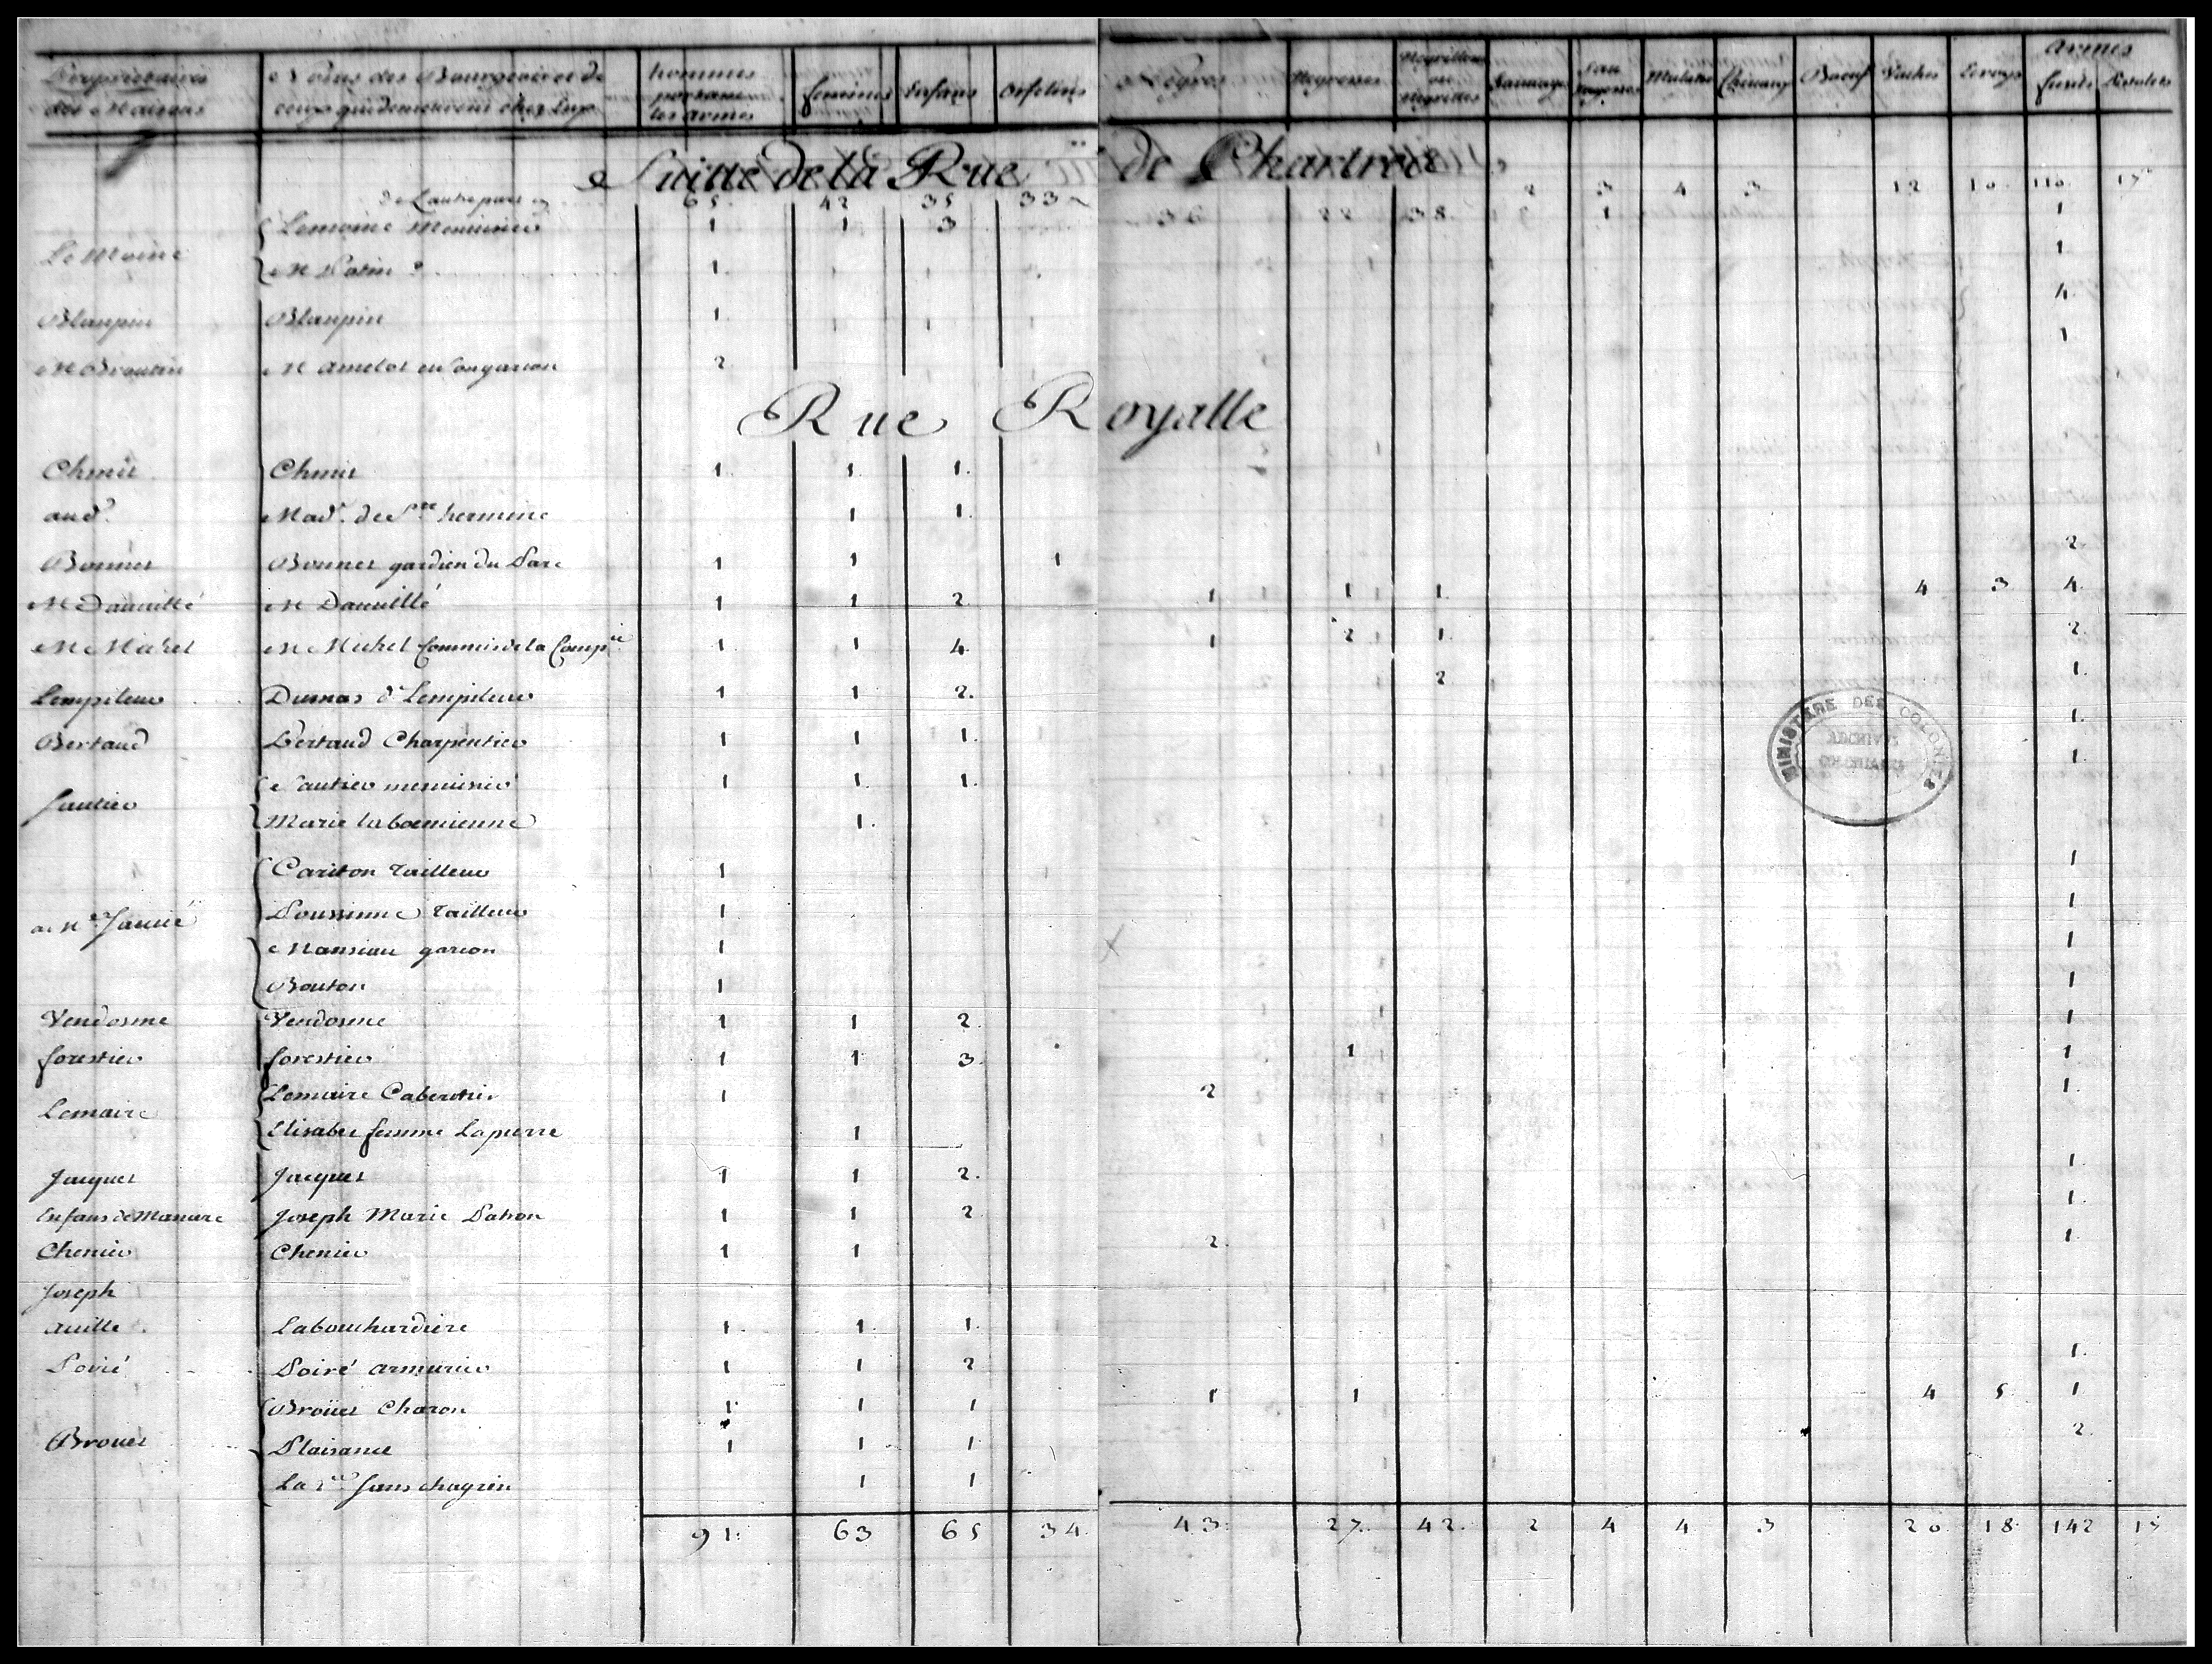 Propriétaires des Maisons | Noms des Bourgeois et de ceux qui demeurent chez Eux | hommes portant les armes | femmes | Enfans | Orfelins | Negres | Negresses | Negrillons ou Negrittes | Sauvages | Sauvagesses | Mulatres | Chevaux | Boeufs | Vaches | Armes fusils | Pistolets
Suitte de la Rue de Chartres
de L'autre part | 65 | 42 | 35 | 33 | 36 | 22 | 38 | 2 | 3 | 4 | 3 | 12 | 10 | 110 | 15
Le Moine | Lemoine Menuisier | 1 | 1 | 3 | 1 | 1
M Patin | 1 | 1
Blaupin | Blaupin | 1 | 4
M Broutin | M Amelot et Son garson | 2 | 1
Rue Royalle
Chenis | Chenis | 1 | 1 | 1
aud.t | Mad.e de S.te hermine | 1 | 1
Bonnet | Bonnet gardien du Parc | 1 | 1 | 1 | 2
M Dauvillé | M Dauvillé | 1 | 1 | 2 | 1 | 1 | 1 | 4 | 3 | 4
M Michel | M Michel Commis de la Comp.ie | 1 | 1 | 4 | 1 | 2 | 1 | 2
Lempileur | Dumas d. Lempileur | 1 | 1 | 2 | 2 | 1
Bertaud | Bertaud Charpentier | 1 | 1 | 1 | 1
Sautier | Sautier menuisier | 1 | 1 | 1 | 1
Marie la boemienne | 1
Cariton Tailleur | 1 | 1
Poussinne Tailleur | 1 | 1
Mansiau garson | 1 | 1
Bouton | 1 | 1
Vendosme | Vendosme | 1 | 1 | 2 | 1
forestier | forestier | 1 | 1 | 3 | 1 | 1
Lemaire | Lemaire Cabertier | 1 | 2 | 1
Elisabet femme Lapierre | 1
Jacques | Jacques | 1 | 1 | 2 | 1
Enfans de Manure | Joseph Marie Patron | 1 | 1 | 2 | 1
Chenier | Chenier | 1 | 1 | 2 | 1
Joseph
Aville | Labouchardiere | 1 | 1 | 1
Poiré | Poiré Armurier | 1 | 1 | 2 | 1
Brouet | Broüet Charon | 1 | 1 | 1 | 1 | 1 | 4 | 5 | 1
Plaisance | 1 | 1 | 1 | 2
La v.ve Sans chagrin | 1 | 1
91 | 63 | 65 | 34 | 43 | 27 | 42 | 2 | 4 | 4 | 3 | 20 | 18 | 142 | 15
MINISTÈRE DES COLONIES
ARCHIVES COLONIALES